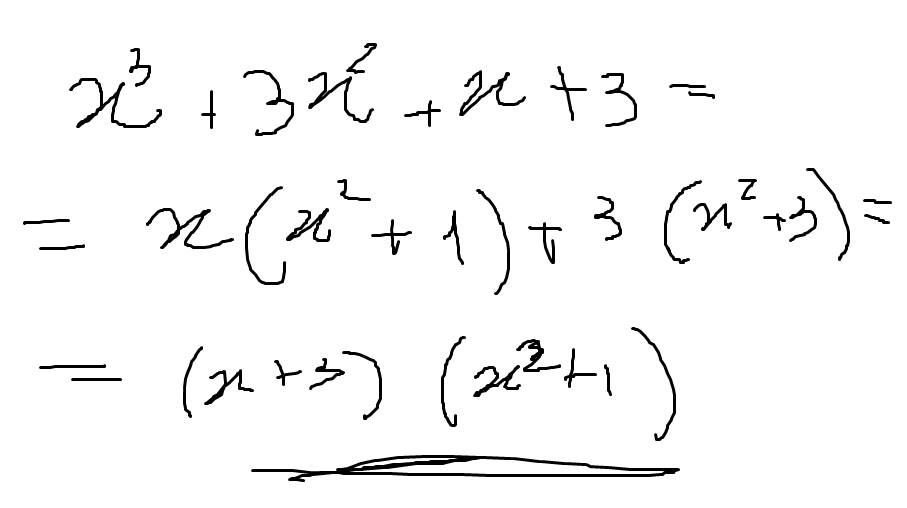 x³ + 3x² + x + 3 =
= x(x² + 1) + 3 (x² + 3) =
= (x + 3) (x² + 1)